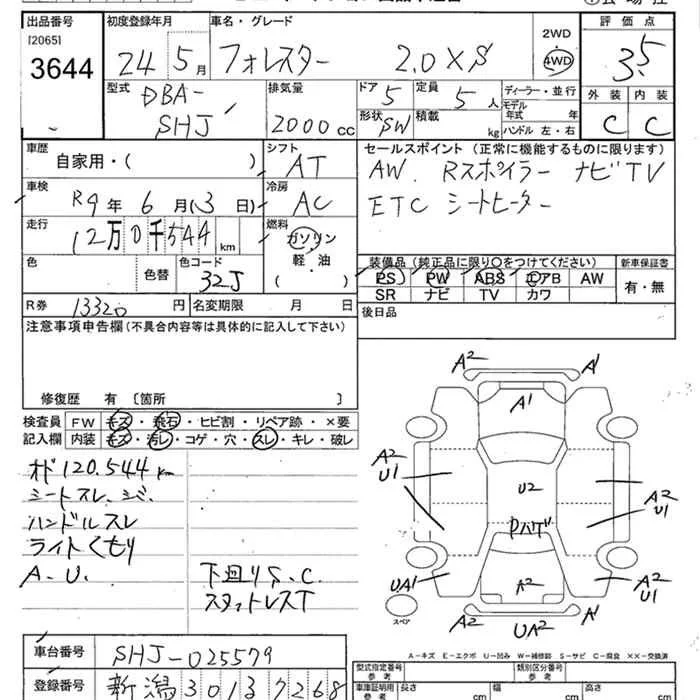 出品番号 初度登録年月 車名・グレード 評価点
[2065] 3644 24 5月 フォレスター 2.0XS 2WD 4WD 3.5
型式 DBA-SHJ 排気量 2000cc ドア 5 定員 5人 ディーラー・並行
形状 SW 積載 kg モデル年式 年 ハンドル 左・右
外装 C 内装 C
車歴 自家用・( ) シフト AT
セールスポイント(正常に機能するものに限ります)
AW. Rスポイラー ナビTV
ETC シートヒーター
車検 R9年6月13日) 冷房 AC
走行 12万0千544km 燃料 ガソリン 軽・油 ( )
色 色替 色コード 32J
装備品(純正品に限り○をつけてください) 新車保証書
PS PW ABS エアB AW 有・無
SR ナビ TV カワ
R券 13320円 名変期限 月 日 後日品
注意事項申告欄(不具合内容等は具体的に記入して下さい)
修復歴 有 〔箇所 〕
検査員 FW キズ・飛石・ヒビ割・リペア跡・×要
記入欄 内装 キズ・汚レ・コゲ・穴・スレ・キレ・破レ
オド120.544km
シートスレ.シミ.
ハンドルスレ
ライトくもり
A.U. 下回りS.C.
スタットレスT
A2 A1
A1
A2 U1 U2 A2 U1
Pハゲ
UA1 A2 A2 U1
UA2 A1
スペア
A-キズ E-エクボ U-凹み W-補修跡 S-サビ C-腐食 ××-交換済
車台番号 SHJ-025579
登録番号 新潟 301 ろ 7268
型式指定番号 参考 類別区分番号 参考
車庫証明用 参考 長さ cm 幅 cm 高さ cm